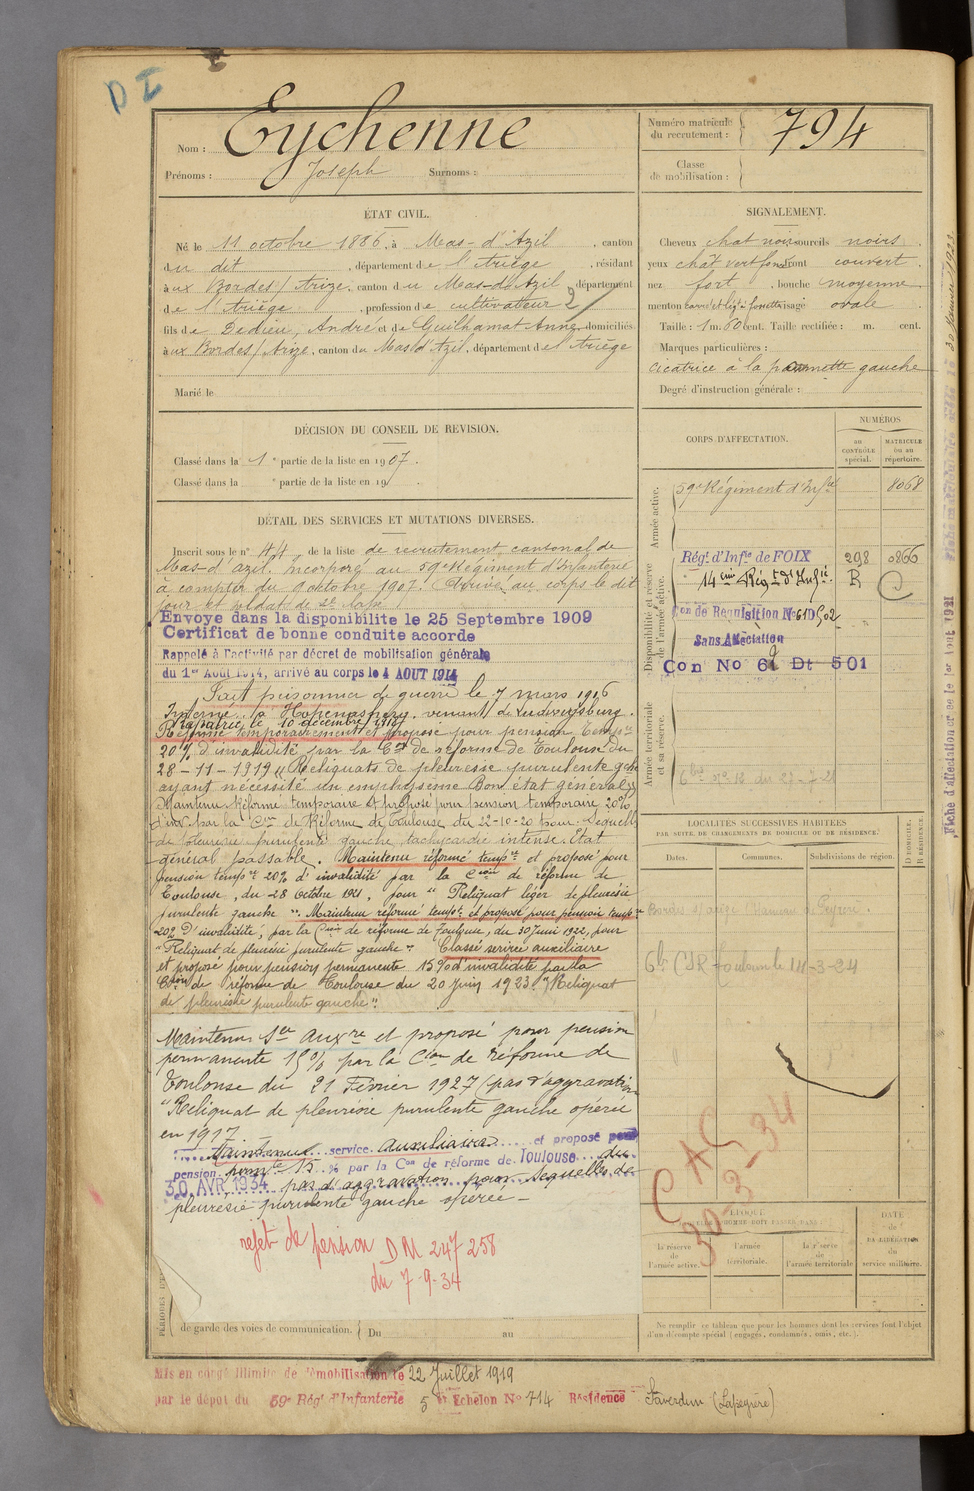 D I
Nom : Eychenne
Prénoms : Joseph Surnoms :
Numéro matricule du recrutement : 794
Classe de mobilisation :
ÉTAT CIVIL.
Né le 11 octobre 1886, à Mas-d'Azil, canton
du dit, département de l'Ariège, résidant
à ux Bordes s/ Arize, canton du Mas-d'Azil département
de l'Ariège, profession de cultivateur
fils de Dedieu, André et de Guilhamat Anne, domiciliés
à ux Bordes s/ Arize, canton du Mas d'Azil, département de l'Ariège
Marié le
SIGNALEMENT.
Cheveux chat noir sourcils noirs
yeux chât vert foncé front couvert
nez fort, bouche moyenne
menton visage ovale
Taille : 1 m. 60 cent. Taille rectifiée : m. cent.
Marques particulières :
cicatrice à la pommette gauche
Degré d'instruction générale :
DÉCISION DU CONSEIL DE REVISION.
Classé dans la 1e partie de la liste en 1907.
Classé dans la e partie de la liste en 19 .
DÉTAIL DES SERVICES ET MUTATIONS DIVERSES.
Inscrit sous le n° 44 de la liste de recrutement cantonal de
Mas-d'azil. Incorporé au 59e Régiment d'Infanterie
à compter du 9 octobre 1907. Arrivé au corps le dit
jour et soldat de 2e classe
Envoye dans la disponibilite le 25 Septembre 1909
Certificat de bonne conduite accorde
Rappelé à l'activité par décret de mobilisation générale
du 1er Août 1914, arrivé au corps le 4 AOUT 1914
Fait prisonnier de guerre le 7 mars 1916
Interné à venant de Ludwigsburg.
Rapatrié le 10 décembre 1918
Réformé temporairement et proposé pour pension temp.re
20% d'invalidité par la Con de réforme de Toulouse du
28-11-1919 "Reliquats de pleurésie purulente gche
ayant nécessité un emphysème Bon état général"
Maintenu Réformé temporaire et proposé pour pension temporaire 20%
d'inv. par la Con de Réforme de Toulouse du 22-10-20 pour : sequelles
de pleurésie purulente gauche, tachycardie intense. Etat
général passable. Maintenu réformé tempre et proposé pour
pension tempre 20% d'invalidité par la Con de réforme de
Toulouse, du 28 Octobre 1921, pour "Reliquat léger de pleurésie
purulente gauche". Maintenu réformé tempre et proposé pour pension tempre
20% d'invalidité, par la Con de réforme de Toulouse, du 30 Juin 1922, pour
"Reliquat de pleurésie purulente gauche". Classé service auxiliaire
et proposé pour pension permanente 15% d'invalidité par la
Con de réforme de Toulouse du 20 juin 1923. "Reliquat
de pleurésie purulente gauche".
Maintenu Sce Auxre et proposé pour pension
permanente 15% par la Con de réforme de
Toulouse du 21 Février 1927 (pas d'aggravation
"Reliquat de pleurésie purulente gauche opérée
en 1917
Maintenu service auxiliaire et proposé pour
pension permte 15 % par la Con de réforme de Toulouse du
30 AVR 1934 pas d'aggravation pour sequelles de
pleurésie purulente gauche opérée -
rejet de pension DM 247 258
du 7-9-34
de garde des voies de communication. Du au
CORPS D'AFFECTATION.
NUMÉROS
au CONTRÔLE spécial.
MATRICULE ou au répertoire.
Armée active.
59e Régiment d'Inftie 8068
Disponibilité et réserve de l'armée active.
Régt d'Infie de FOIX 298 0866
14eme Régt d'Infie R C
Con de Requisition No 61 D 502
Sans Affectation
Con No 61 Dt 501
Armée territoriale et sa réserve.
LOCALITÉS SUCCESSIVES HABITÉES
PAR SUITE DE CHANGEMENTS DE DOMICILE OU DE RÉSIDENCE.
Dates. Communes. Subdivisions de région. D DOMICILE. R RÉSIDENCE.
Toulouse le 14-3-24
CAC
30-3-34
ÉPOQUE
À LAQUELLE L'HOMME DOIT PASSER DANS :
la réserve de l'armée active.
l'armée territoriale.
la réserve de l'armée territoriale
DATE de LA LIBÉRATION du service militaire.
Ne remplir ce tableau que pour les hommes dont les services font l'objet
d'un décompte spécial (engagés, condamnés, omis, etc.).
Fiche d'affectation créée le 1er Aout 1921
Mis en congé illimité de démobilisation le 22 Juillet 1919
par le dépôt du 59e Régt d'Infanterie 5 Echelon No 714 Résidence Saverdun (Lapeyrère)